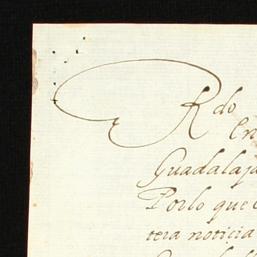 Rdo
En
Guadalaja
Porlo que
tera noticia